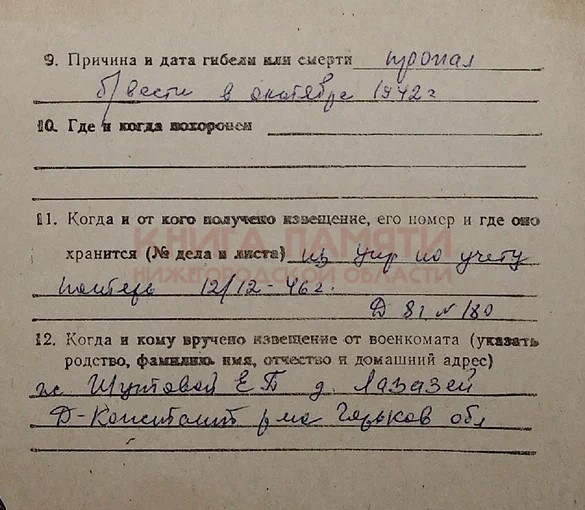 9. Причина и дата гибели или смерти пропал
б/вести в октябре 1942 г
10. Где и когда похоронен
11. Когда и от кого получено извещение, его номер и где оно
КНИГА ПАМЯТИ
хранится (№ дела и листа) из упр по учету
НИЖЕГОРОДСКОЙ ОБЛАСТИ
потерь 12/12-46 г.
Д 81 N 180
12. Когда и кому вручено извещение от военкомата (указать
родство, фамилию имя, отчество и домашний адрес)
Шутовой Е П д. Лазазей
Д-Констант р-на Горьков обл